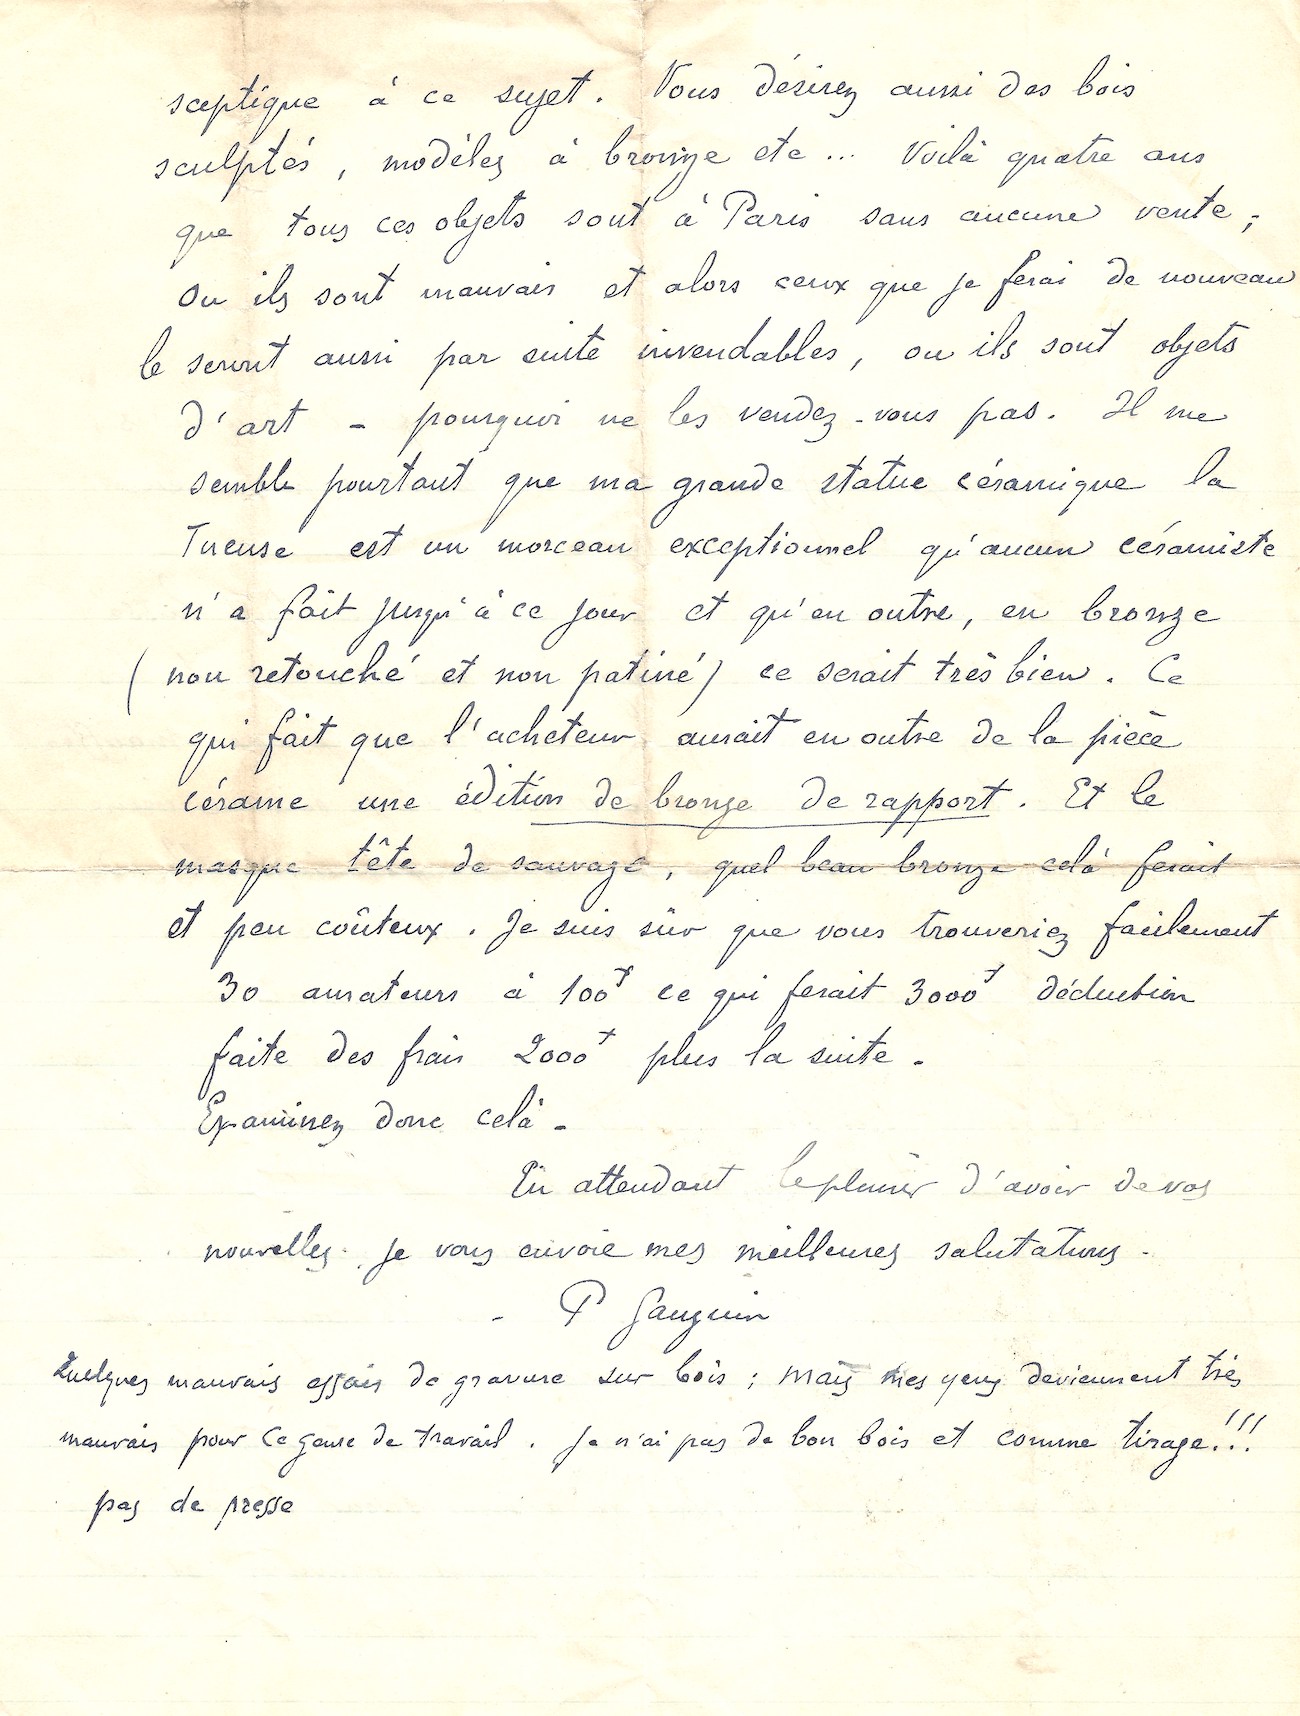 sceptique à ce sujet. Vous désirez aussi des bois
sculptés, modèles à bronze etc... Voilà quatre ans
que tous ces objets sont à Paris sans aucune vente;
ou ils sont mauvais et alors ceux que je ferai de nouveau
le seront aussi par suite invendables, ou ils sont objets
d'art - pourquoi ne les vendez-vous pas. Il me
semble pourtant que ma grande statue céramique la
Tueuse est un morceau exceptionnel qu'aucun céramiste
n'a fait jusqu'à ce jour et qu'en outre, en bronze
(non retouché et non patiné) ce serait très bien. Ce
qui fait que l'acheteur aurait en outre de la pièce
cérame une édition de bronze de rapport. Et le
masque tête de sauvage, quel beau bronze celà ferait
et peu coûteux. Je suis sûr que vous trouveriez facilement
30 amateurs à 100f ce qui ferait 3000f déduction
faite des frais 2000f plus la suite.
Examinez donc celà -
En attendant le plaisir d'avoir de vos
nouvelles je vous envoie mes meilleures salutations -
P Gauguin
Quelques mauvais essais de gravure sur bois; mais mes yeux deviennent très
mauvais pour ce genre de travail. Je n'ai pas de bon bois et comme tirage!!!
pas de presse